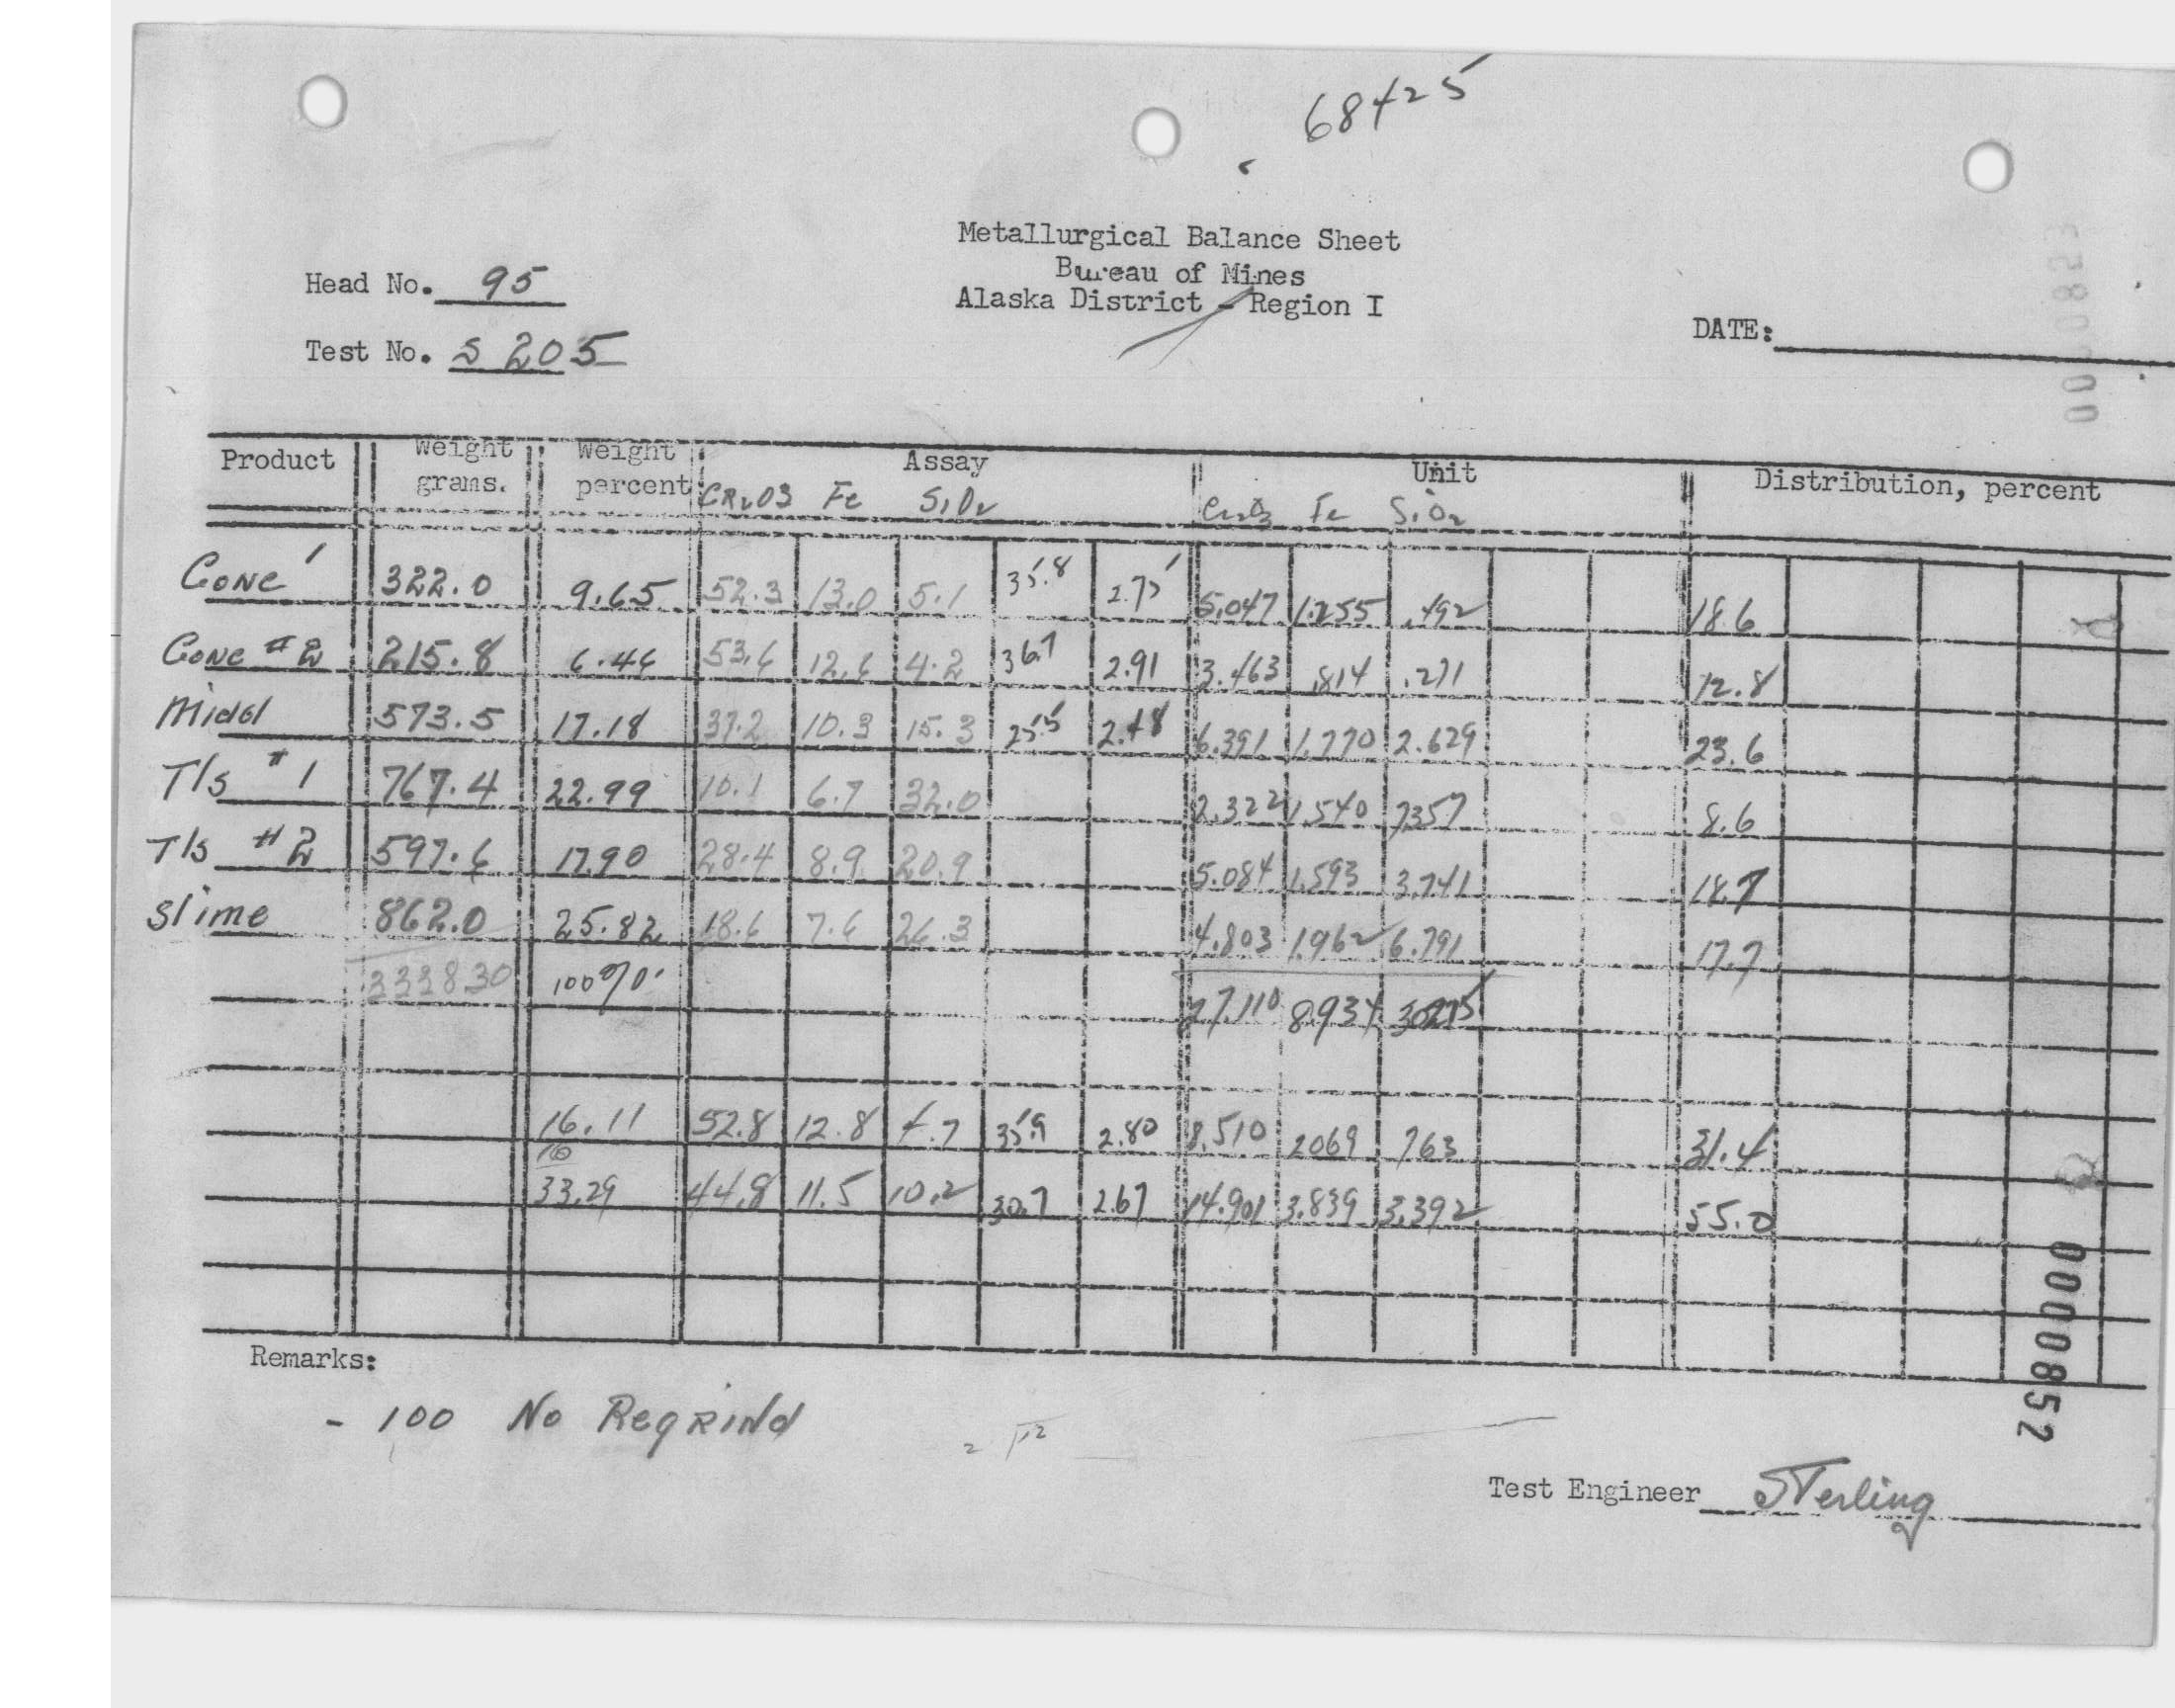 68425
Metallurgical Balance Sheet
Bureau of Mines
Alaska District - Region I
Head No. 95
Test No. S 205
DATE:
Product Weight grams. Weight percent Assay Unit Distribution, percent
CR2O3 Fe SiO2 Cr2O3 Fe SiO2
Conc 1 322.0 9.65 52.3 13.0 5.1 35.8 2.75 5.047 1.255 .492 18.6
Conc #2 215.8 6.46 53.6 12.6 4.2 36.7 2.91 3.463 .814 .271 12.8
Midd 573.5 17.18 37.2 10.3 15.3 25.5 2.48 6.391 1.770 2.629 23.6
Tls #1 767.4 22.99 10.1 6.7 32.0 2.322 1.540 7357 8.6
Tls #2 597.6 17.90 28.4 8.9 20.9 5.084 1.593 3.741 18.7
Slime 862.0 25.82 18.6 7.6 26.3 4.803 1.962 6.791 17.7
3338.30 100% 27.110 8.934
16.11 52.8 12.8 4.7 35.9 2.80 8.510 2069 763 31.4
33.29 44.8 11.5 10.2 30.7 2.67 14.901 3.839 3.392 55.0
Remarks:
- 100 No Regrind
Test Engineer Sterling
0000852